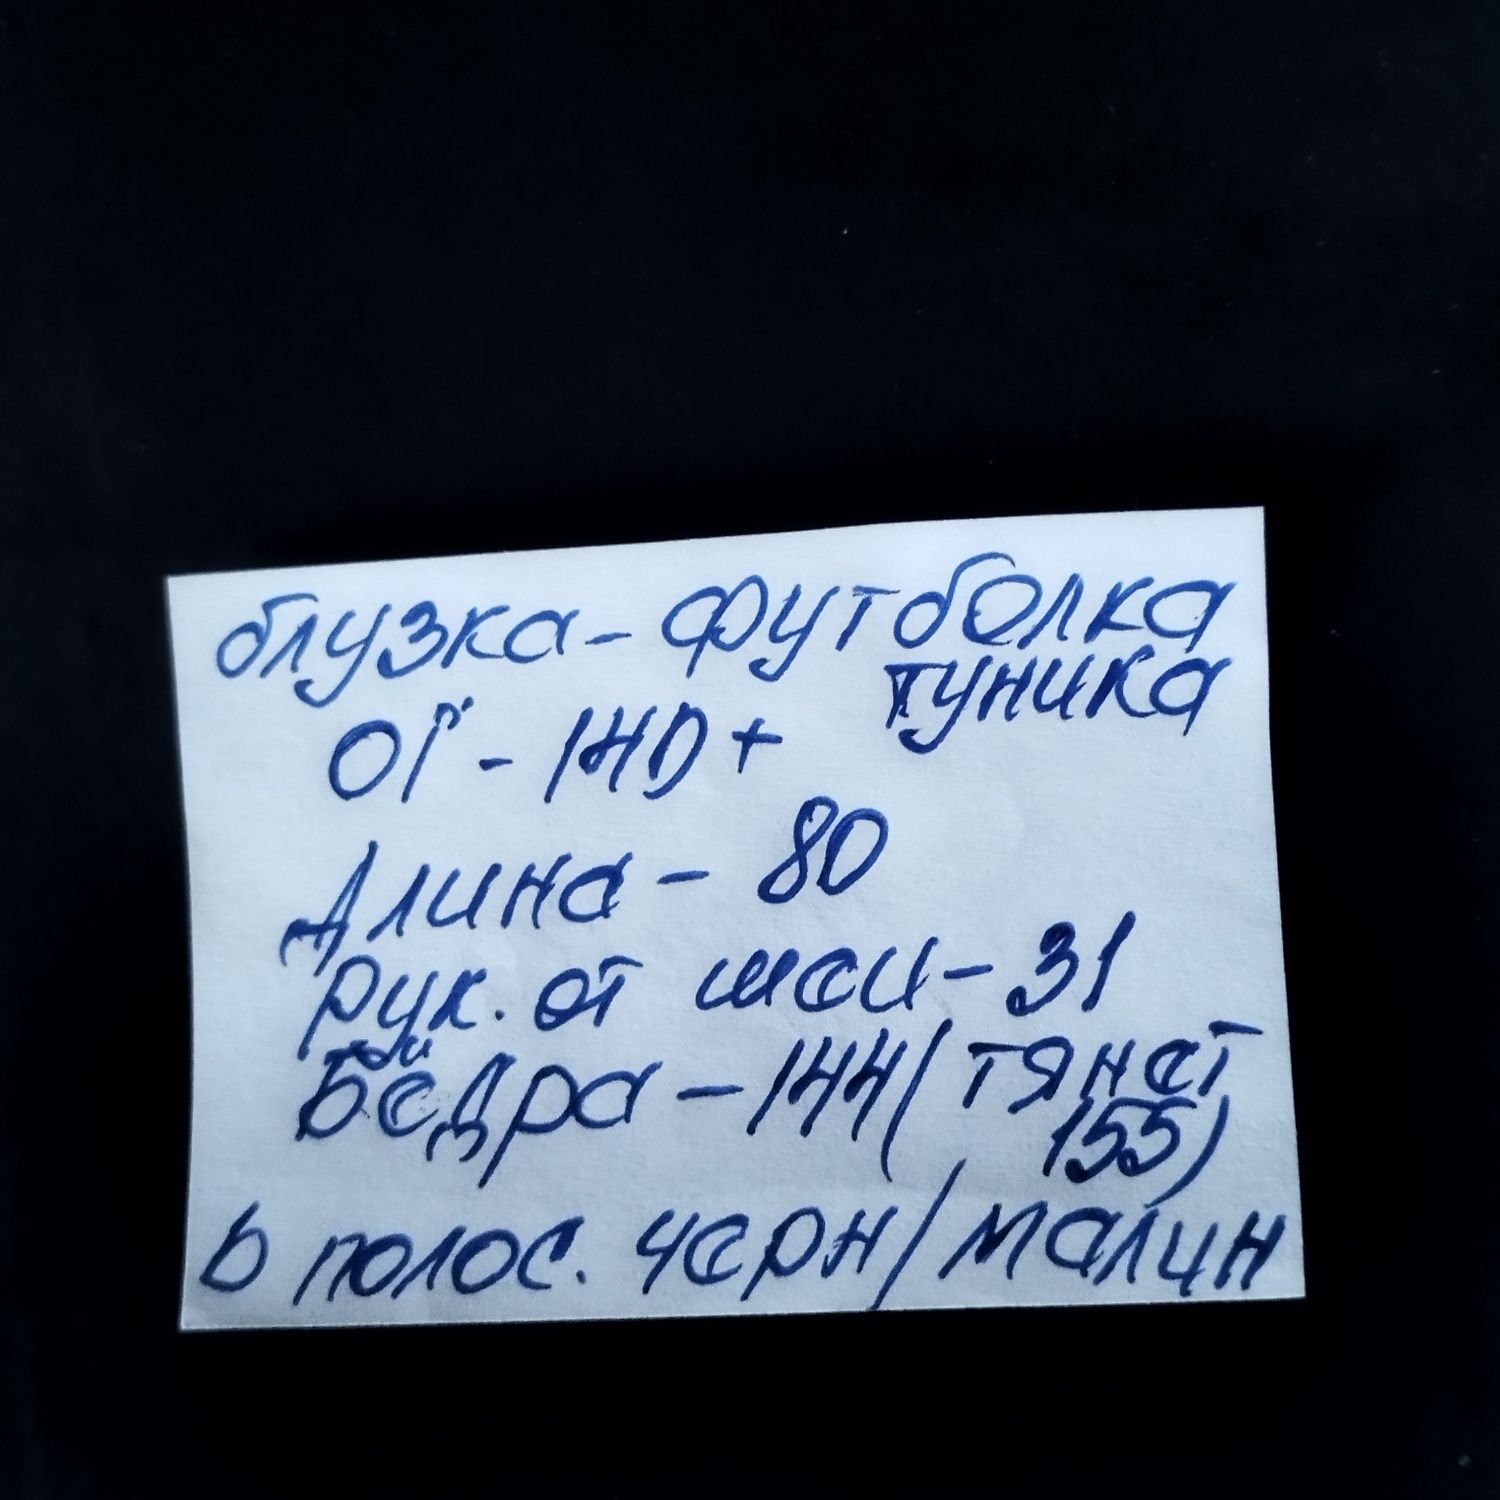 блузка - футболка
туника
ОГ - 140 +
Длина - 80
рук. от шеи - 31
Бёдра - 144 ( тянет
155)
в полос. черн / малин